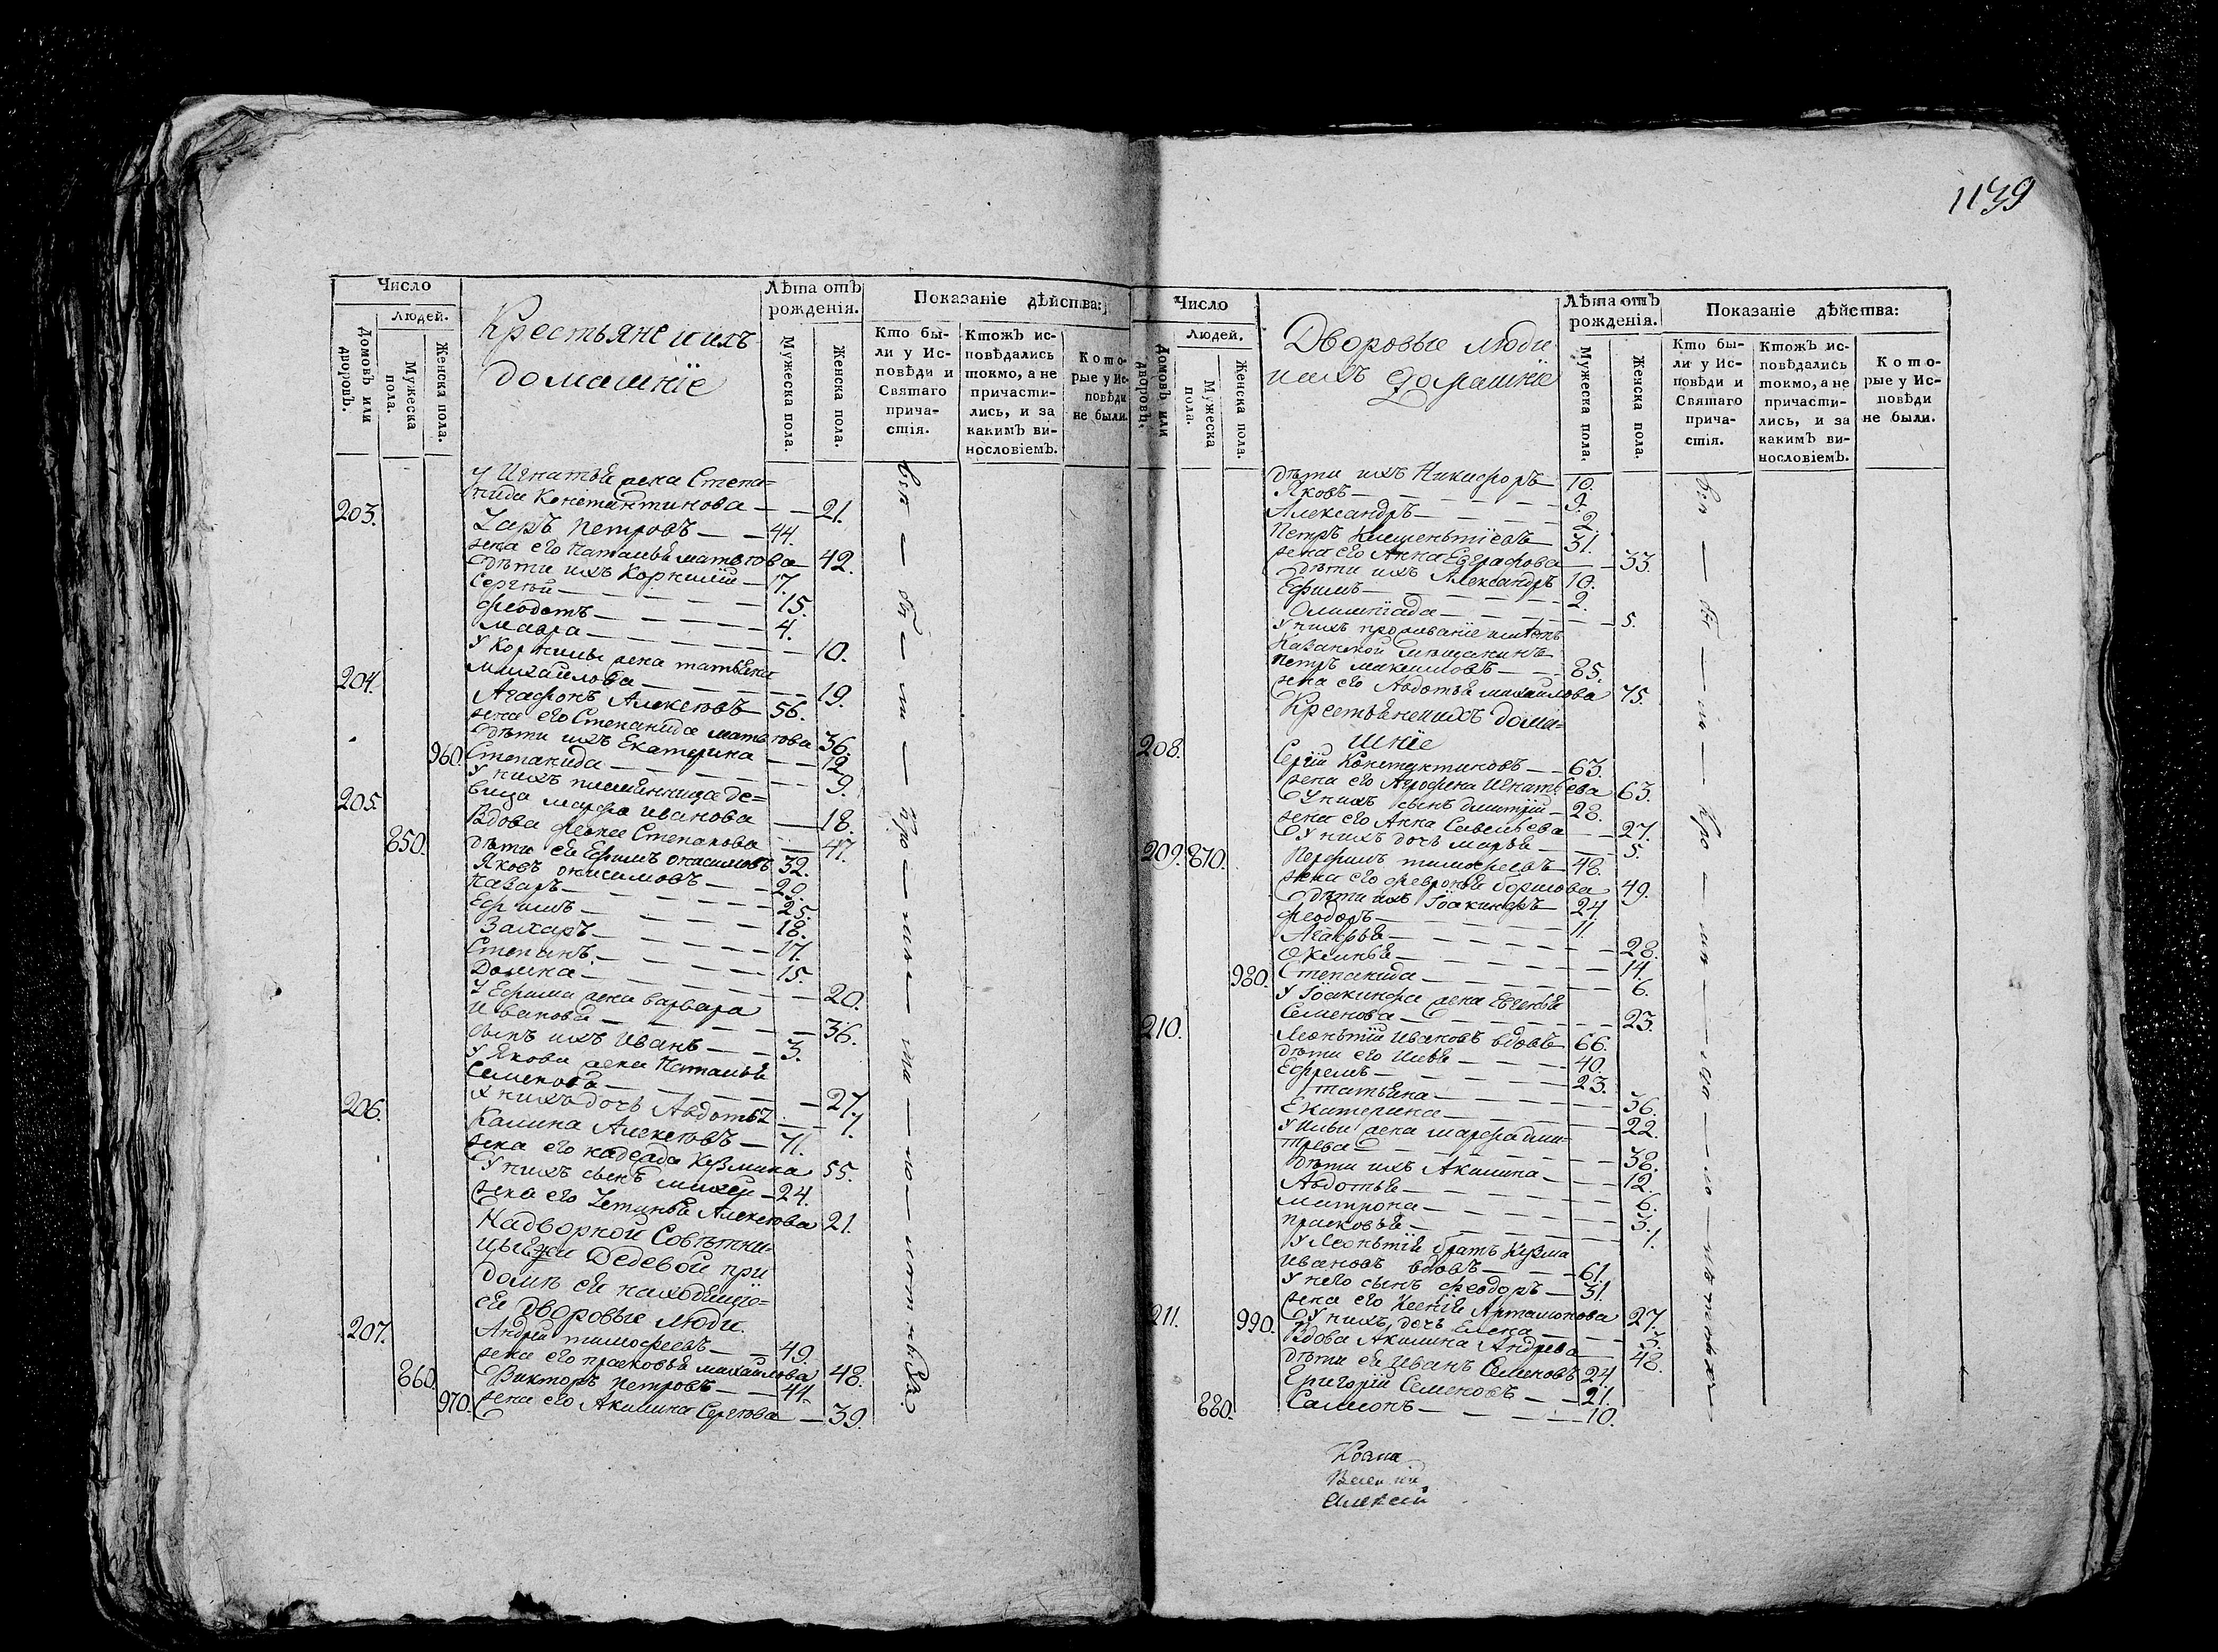 1139
Число
Людей.
Домовъ или дворовъ.
Мужеска пола.
Женска пола.
Крестьяне и ихъ
домашнїе
Лѣта отъ рожденїя.
Мужеска пола.
Женска пола.
Показанїе дѣйства:
Кто были у Исповѣди и Святаго причастїя.
Ктожъ исповѣдались токмо, а не причастились, и за какимъ винословїемъ.
Которые у Исповѣди не были.
У Игнатья жена Степа=
нида Константинова — — 21.
203. Петровъ — — 44.
жена его Наталья Матвѣева — 42.
дѣти ихъ Корнилїй — 17.
Сергѣй — — — — 15.
Феодотъ — — — — 4.
Мавра — — — — 10.
У Корнилы жена Татьяна
Михайлова — — — — 19.
204. Агафонъ Алексѣевъ — 56.
жена его Степанида Матвѣева 36.
дѣти ихъ Екатерина — — 12.
960. Степанида — — — — 9.
У нихъ племянница де=
вица Марфа Иванова — 18.
205. Вдова Степанова — 47.
850. дѣти ея Ефимъ Онисимовъ 32.
Яковъ Онисимовъ — — 29.
Назаръ — — — — 25.
Ефимъ — — — — 18.
Захаръ — — — — 17.
Степанъ — — — — 15.
Домна — — — — 20.
У Ефима жена Варвара
Иванова — — — — 36.
сынъ ихъ Иванъ — — 3.
У Якова жена Наталья
Семенова — — — — 27.
У нихъ дочь Авдотья — — 1.
206. Калина Алексѣевъ — 71.
жена его Надежда Козмина 55.
У нихъ сынъ Михей — 24.
жена его Алексѣева 21.
Надворной Совѣтни=
цы Дедевой при
домѣ ея находящїе=
ся дворовые люди.
207. Андрей Тимофеевъ — — 49.
жена его Прасковья Михайлова 48.
860. Викторъ Петровъ — — 44.
970. жена его Акилина Сергѣева — 39.
Число
Людей.
Домовъ или дворовъ.
Мужеска пола.
Женска пола.
Дворовые люди
и ихъ домашнїе
Лѣта отъ рожденїя.
Мужеска пола.
Женска пола.
Показанїе дѣйства:
Кто были у Исповѣди и Святаго причастїя.
Ктожъ исповѣдались токмо, а не причастились, и за какимъ винословїемъ.
Которые у Исповѣди не были.
дѣти ихъ Никифоръ — 10.
Яковъ — — — — 9.
Александръ — — — — 2.
Петръ Климентїевъ — 31.
жена его Анна Евграфова — 33.
дѣти ихъ Александръ 10.
Ефимъ — — — — 2.
Олимпїада — — — — 5.
У нихъ проживанїе имѣетъ
Казанской мѣщанинъ
Петръ Максимовъ — — 85.
жена его Авдотья Михайлова 75.
Крестьяне и ихъ дома=
шнїе
208. Сергїй Константиновъ — 63.
жена его Агрофена Игнатьева 63.
У нихъ сынъ Дмитрїй — 28.
жена его Анна Савельева — — 27.
У нихъ дочь Марья — — 5.
209. 870. Перфилъ Тимофеевъ — 48.
жена его Февронья Борисова 49.
дѣти ихъ Їоакинфъ — 24.
Феодоръ — — — — 11.
Агафья — — — — 28.
Оксинья — — — — 14.
980. Степанида — — — — 6.
У Їоакинфа жена Евгенья
Семенова — — — — 23.
210. Леонтїй Ивановъ вдовъ — 66.
дѣти его Илья — — — 40.
Ефремъ — — — — 23.
Татьяна — — — — 36.
Екатерина — — — — 22.
У Ильи жена Марфа Дми=
трева — — — — 38.
дѣти ихъ Акилина — — 12.
Авдотья — — — — 6.
Матрона — — — — 3.
Прасковья — — — — 1.
У Леонтїя братъ Козма
Ивановъ вдовъ — — — 61.
У него сынъ Феодоръ — 31.
жена его Ксенїя Артамонова 27.
У нихъ дочь Елена — — 3.
211. 990. Вдова Акилина Андрева — 48.
дѣти ея Иванъ Семеновъ 24.
Григорїй Семеновъ — — 21.
880. Самсонъ — — — — 10.
Алексѣй